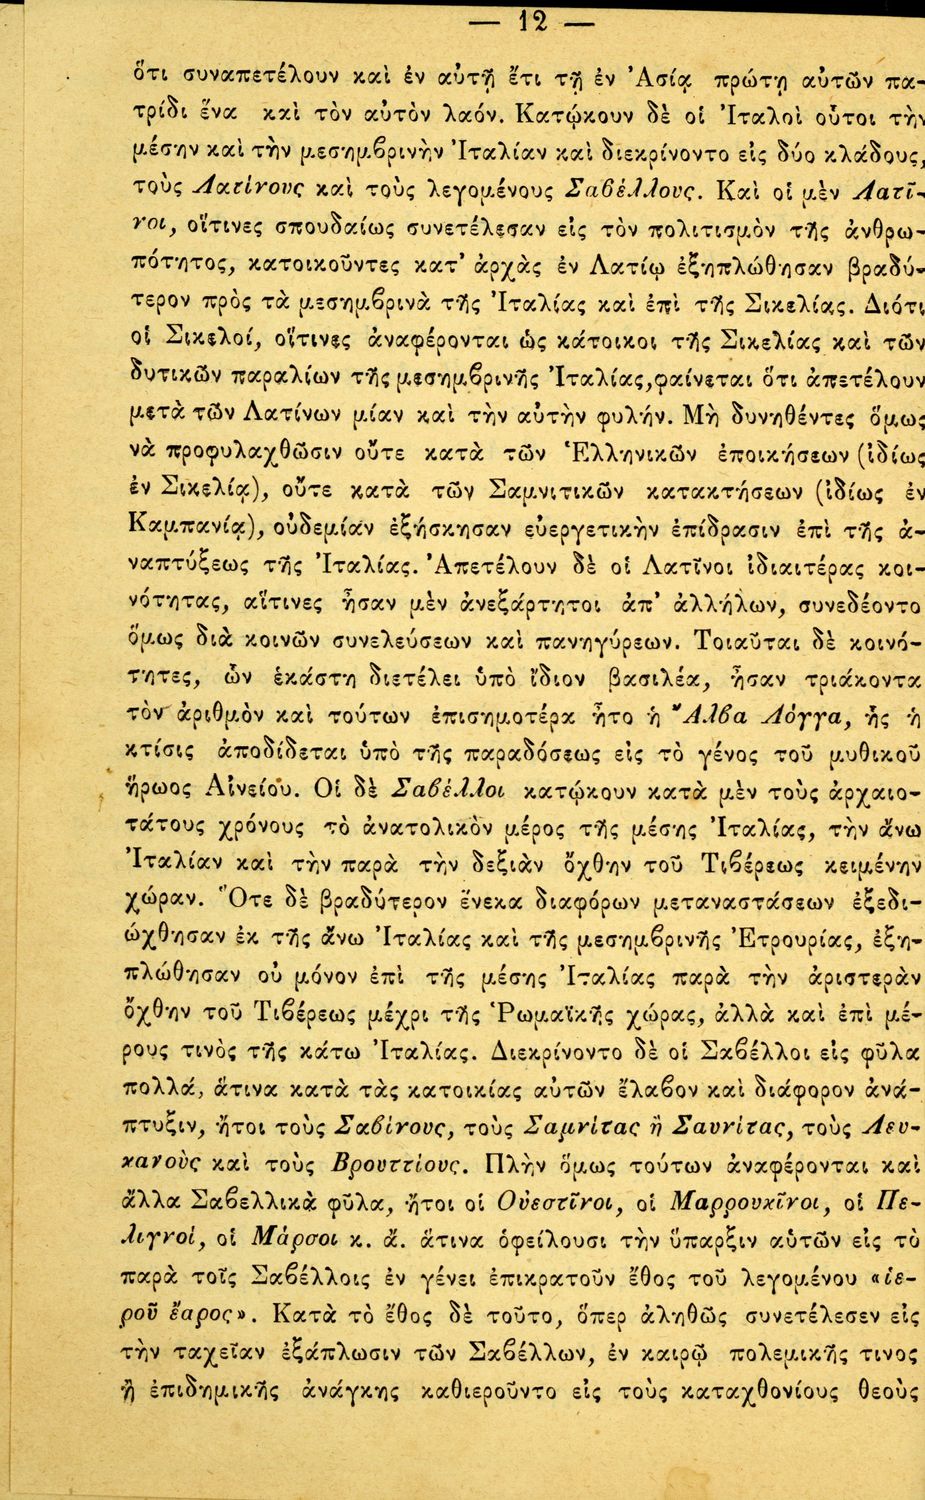 — 12 —
ὅτι συναπετέλουν καὶ ἐν αὐτῇ ἔτι τῇ ἐν Ἀσίᾳ πρώτῃ αὐτῶν πα-
τρίδι ἕνα καὶ τὸν αὐτὸν λαόν. Κατῴκουν δὲ οἱ Ἰταλοὶ οὗτοι τὴν
μέσην καὶ τὴν μεσημβρινὴν Ἰταλίαν καὶ διεκρίνοντο εἰς δύο κλάδους,
τοὺς Λατίνους καὶ τοὺς λεγομένους Σαβέλλους. Καὶ οἱ μὲν Λατῖ-
νοι, οἵτινες σπουδαίως συνετέλεσαν εἰς τὸν πολιτισμὸν τῆς ἀνθρω-
πότητος, κατοικοῦντες κατ' ἀρχὰς ἐν Λατίῳ ἐξηπλώθησαν βραδύ-
τερον πρὸς τὰ μεσημβρινὰ τῆς Ἰταλίας καὶ ἐπὶ τῆς Σικελίας. Διότι
οἱ Σικελοί, οἵτινες ἀναφέρονται ὡς κάτοικοι τῆς Σικελίας καὶ τῶν
δυτικῶν παραλίων τῆς μεσημβρινῆς Ἰταλίας, φαίνεται ὅτι ἀπετέλουν
μετὰ τῶν Λατίνων μίαν καὶ τὴν αὐτὴν φυλήν. Μὴ δυνηθέντες ὅμως
νὰ προφυλαχθῶσιν οὔτε κατὰ τῶν Ἑλληνικῶν ἐποικήσεων (ἰδίως
ἐν Σικελίᾳ), οὔτε κατὰ τῶν Σαμνιτικῶν κατακτήσεων (ἰδίως ἐν
Καμπανίᾳ), οὐδεμίαν ἐξήσκησαν εὐεργετικὴν ἐπίδρασιν ἐπὶ τῆς ἀ-
ναπτύξεως τῆς Ἰταλίας. Ἀπετέλουν δὲ οἱ Λατῖνοι ἰδιαιτέρας κοι-
νότητας, αἵτινες ἦσαν μὲν ἀνεξάρτητοι ἀπ' ἀλλήλων, συνεδέοντο
ὅμως διὰ κοινῶν συνελεύσεων καὶ πανηγύρεων. Τοιαῦται δὲ κοινό-
τητες, ὧν ἑκάστη διετέλει ὑπὸ ἴδιον βασιλέα, ἦσαν τριάκοντα
τὸν ἀριθμὸν καὶ τούτων ἐπισημοτέρα ἦτο ἡ Ἄλβα Λόγγα, ἧς ἡ
κτίσις ἀποδίδεται ὑπὸ τῆς παραδόσεως εἰς τὸ γένος τοῦ μυθικοῦ
ἥρωος Αἰνείου. Οἱ δὲ Σαβέλλοι κατῴκουν κατὰ μὲν τοὺς ἀρχαιο-
τάτους χρόνους τὸ ἀνατολικὸν μέρος τῆς μέσης Ἰταλίας, τὴν ἄνω
Ἰταλίαν καὶ τὴν παρὰ τὴν δεξιὰν ὄχθην τοῦ Τιβέρεως κειμένην
χώραν. Ὅτε δὲ βραδύτερον ἕνεκα διαφόρων μεταναστάσεων ἐξεδι-
ώχθησαν ἐκ τῆς ἄνω Ἰταλίας καὶ τῆς μεσημβρινῆς Ἐτρουρίας, ἐξη-
πλώθησαν οὐ μόνον ἐπὶ τῆς μέσης Ἰταλίας παρὰ τὴν ἀριστερὰν
ὄχθην τοῦ Τιβέρεως μέχρι τῆς Ῥωμαϊκῆς χώρας, ἀλλὰ καὶ ἐπὶ μέ-
ρους τινὸς τῆς κάτω Ἰταλίας. Διεκρίνοντο δὲ οἱ Σαβέλλοι εἰς φῦλα
πολλά, ἅτινα κατὰ τὰς κατοικίας αὐτῶν ἔλαβον καὶ διάφορον ἀνά-
πτυξιν, ἤτοι τοὺς Σαβίνους, τοὺς Σαμνίτας ἢ Σαυνίτας, τοὺς Λευ-
κανοὺς καὶ τοὺς Βρουττίους. Πλὴν ὅμως τούτων ἀναφέρονται καὶ
ἄλλα Σαβελλικὰ φῦλα, ἤτοι οἱ Οὐεστῖνοι, οἱ Μαρρουκῖνοι, οἱ Πε-
λιγνοί, οἱ Μάρσοι κ. ἄ. ἅτινα ὀφείλουσι τὴν ὕπαρξιν αὐτῶν εἰς τὸ
παρὰ τοῖς Σαβέλλοις ἐν γένει ἐπικρατοῦν ἔθος τοῦ λεγομένου «ἱε-
ροῦ ἔαρος». Κατὰ τὸ ἔθος δὲ τοῦτο, ὅπερ ἀληθῶς συνετέλεσεν εἰς
τὴν ταχεῖαν ἐξάπλωσιν τῶν Σαβέλλων, ἐν καιρῷ πολεμικῆς τινος
ἢ ἐπιδημικῆς ἀνάγκης καθιεροῦντο εἰς τοὺς καταχθονίους θεοὺς